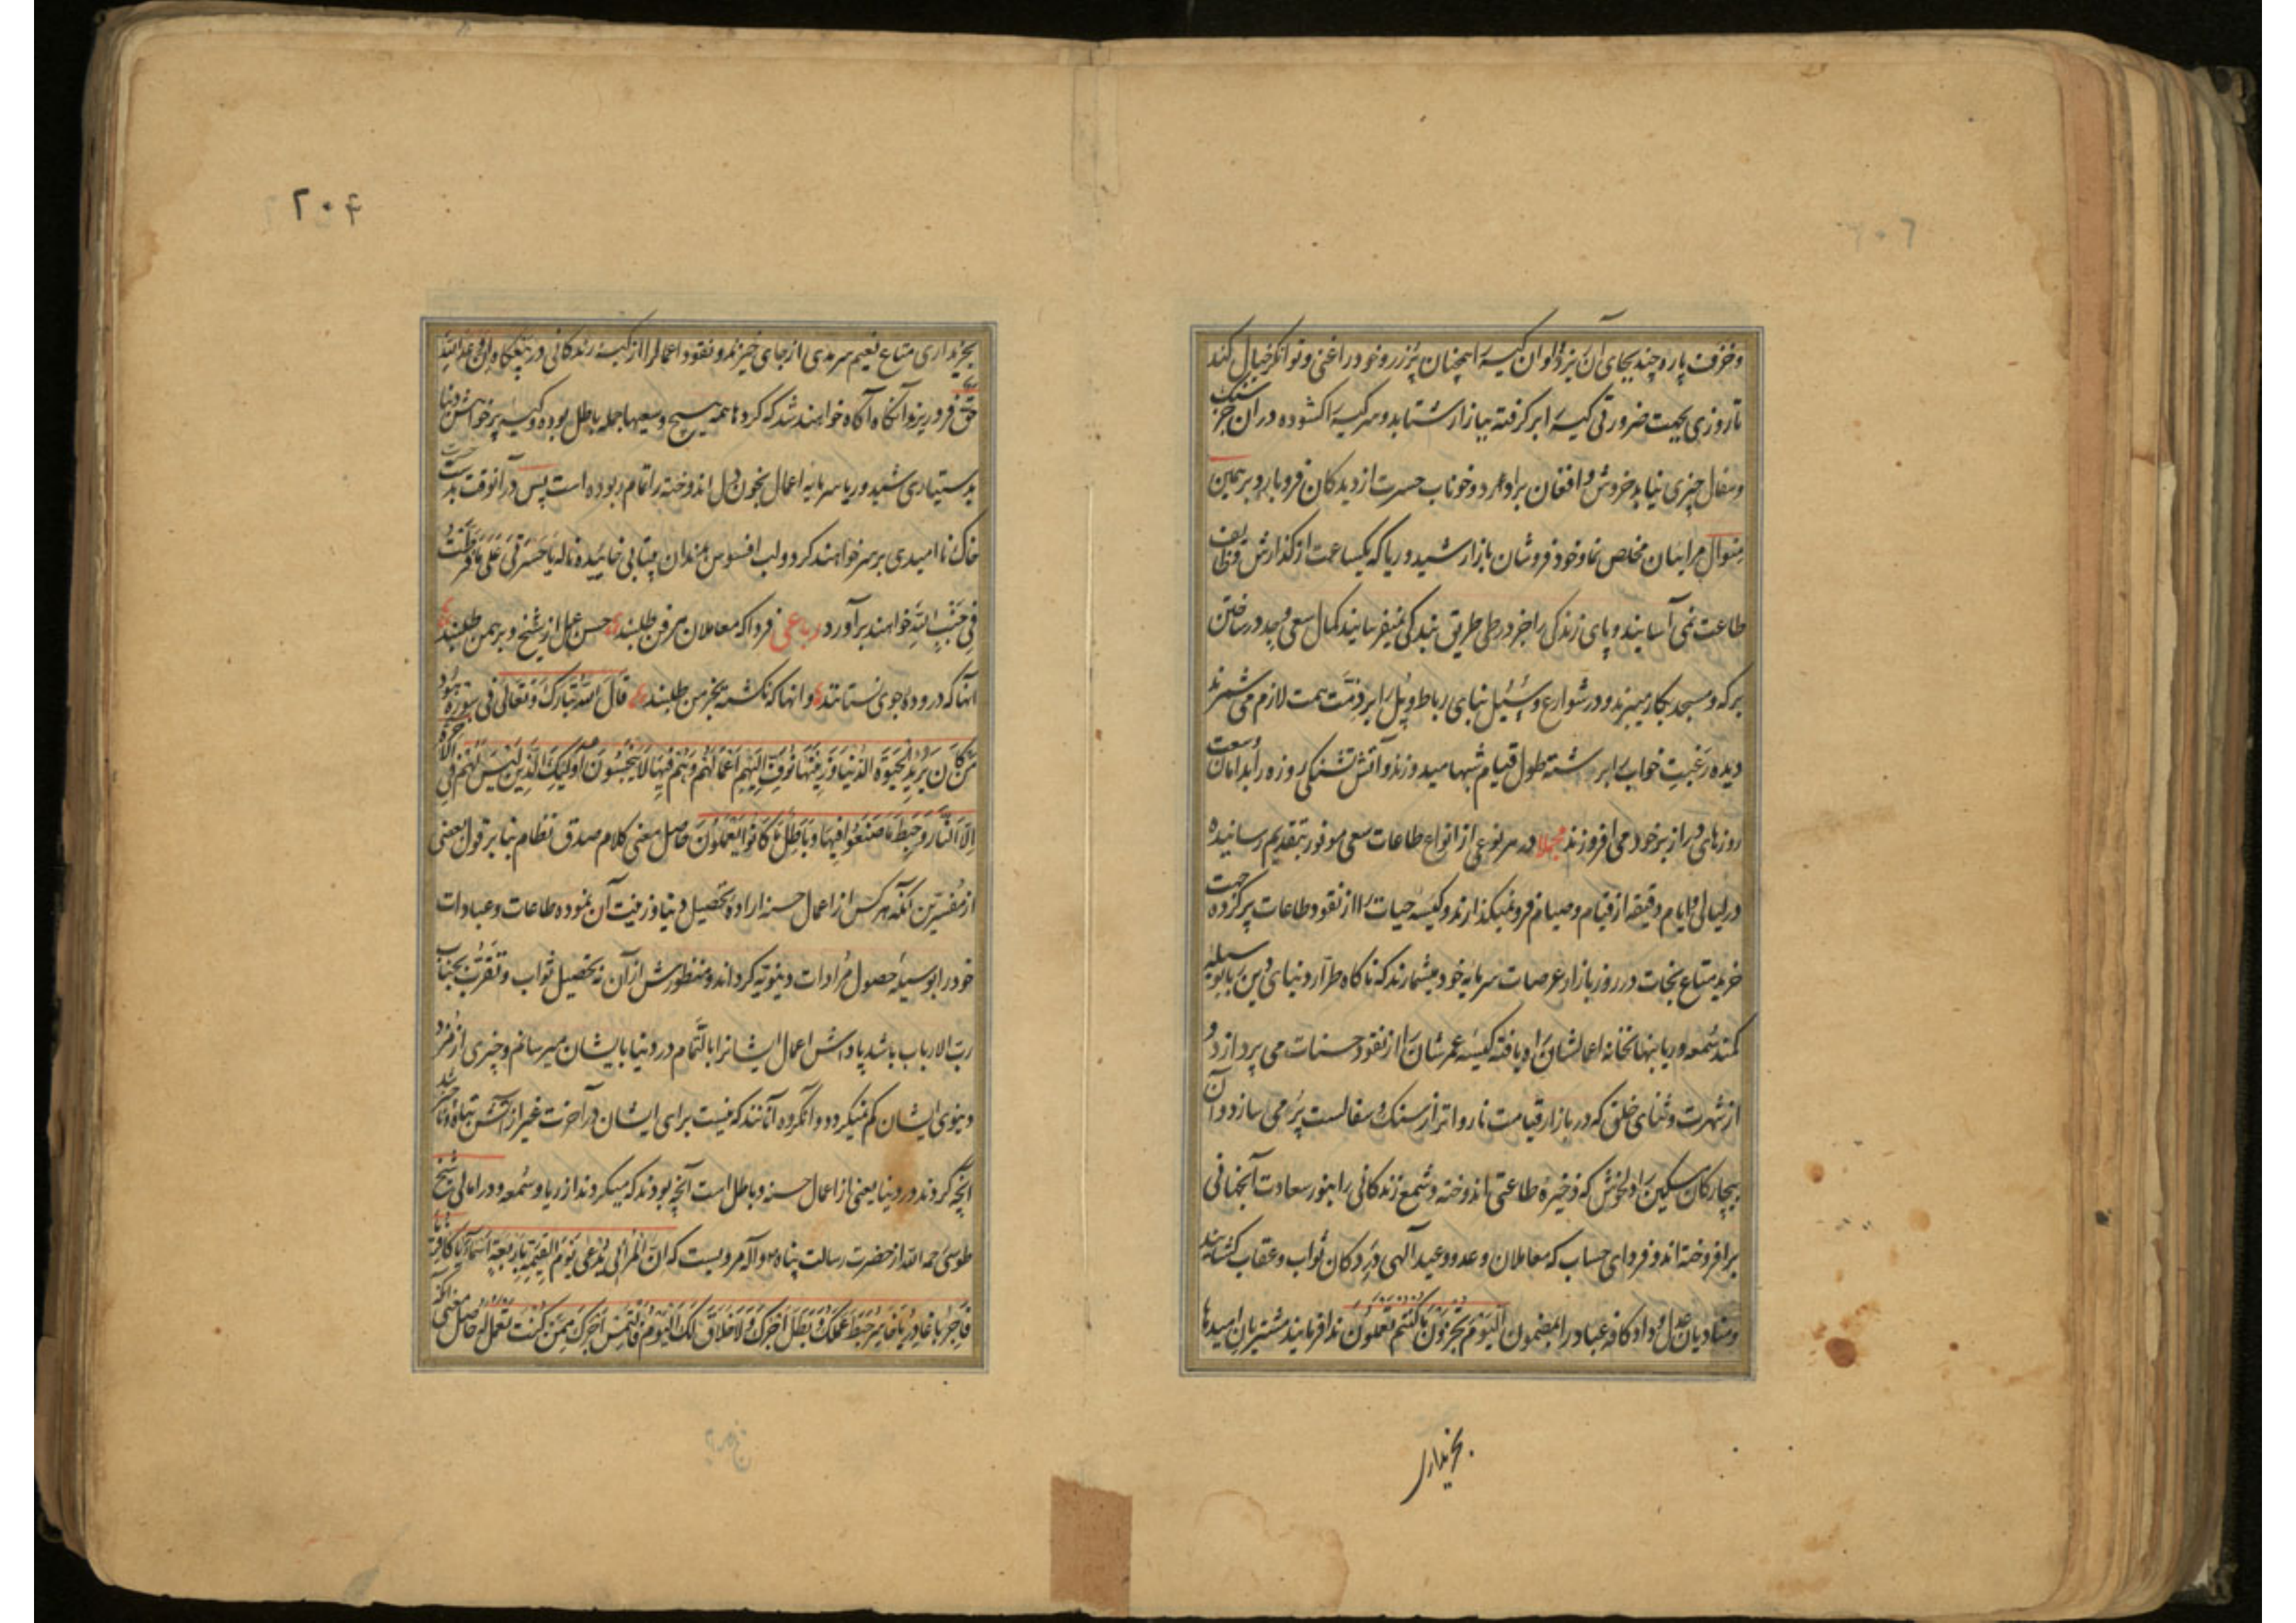 وخزف پاره چند بجای آن بریزد و او آن کیسه را همچنان پر زر و خود را غنی و توانگر خیال کند
تا روزی بجهت ضرورتی کیسه را بر گرفته ببازار شتابد و سر کیسه را گشوده در آن جز سنگ
و سفال چیزی نیابد خروش و افغان برآورد و خوناب حسرت از دیدگان فرو بارد و بر همین
منوال مرائیان مخلص نما و خود فروشان بازار شید و ریا که یکساعت از گذارش وظایف
طاعت نمی آسایند و پای زندگی را جز در طی طریق بندگی نمیفرسایند کمال سعی و جهد در ساختن
برکه و مسجد بکار میبرند و در شوارع و سبیل بنای رباط و پل را بر ذمت همت لازم می شمرند
دیده رغبت خواب را بر شته طول قیام شبها میدوزند و آتش تشنگی روزه را بدامان وسعت
روزهای دراز بر خود می افروزند مجملا در هر نوعی از انواع طاعات سعی موفور بتقدیم رسانیده
در لیالی و ایام دقیقه از قیام و صیام فرو نمیگذارند و کیسه حیات را از نقود طاعات پر کرده جهت
خرید متاع نجات در روز بازار عرصات سرمایه خود میشمارند که ناگاه طرار دنیای دین ربا بوسیله
کمند سمعه و ریا بنهانخانه اعمالشان راه یافته کیسه عمرشان را از نقود حسنات می پردازد و
از شهرت و ثنای خلق که در بازار قیامت نارواتر از سنگ و سفالست پر می سازد و آن
بیچارگان مسکین را دلخوش که ذخیره طاعتی اندوخته و شمع زندگانی را بنور سعادت آنجهانی
برافروخته اند و فردای حساب که معاملان وعد و وعید آلهی در دکان ثواب و عقاب گشایند
و منادیان عدل و داد کافه عباد را بمضمون الیوم تجزون ما کنتم تعملون ندا فرمایند مشتریان امیدها
بخریداری
۲۰۴
بخریداری متاع نعیم سرمدی از جای خیزند و نقود اعمال را از کیسه زندگانی در
حق فرو ریزند آنگاه آگاه خواهند شد که کردها همه هیچ و سعیها جمله باطل بوده و کیسه پر خواهش دنیا
بدستیاری شید و ریا سرمایه اعمال بخون دل اندوخته را تمام ربوده است پس در آنوقت بدست حسرت
خاک ناامیدی بر سر خواهند کرد و لب افسوس بدندان بیتابی خاییده ناله یا حسرتی علی ما فرطت
فی جنب الله خواهند برآورد رباعی فردا که معاملان هر فن طلبند حسن عمل از شیخ و برهمن طلبند
آنها که دروده جوی نستانند و آنها که نکشته خرمن طلبند قال الله تبارک و تعالی فی سورة هود
من کان یرید الحیوة الدنیا وزینتها نوف الیهم اعمالهم وهم فیها لا یبخسون اولئک الذین لیس لهم فی الاخرة
الا النار وحبط ما صنعوا فیها وباطل ما کانوا یعملون حاصل معنی کلام صدق نظام بنا بر قول بعضی
از مفسرین آنکه هر کس از اعمال حسنه اراده تحصیل دنیا و زینت آن نموده طاعات و عبادات
خود را بوسیله حصول مرادات دنیویه گرداند و منظورش از آن نه تحصیل ثواب و تقرب بجناب
رب الارباب باشد پاداش اعمال ایشانرا بالتمام در دنیا بایشان میرسانم و چیزی از مزد
دنیوی ایشان کم نمیگردد و آنگروه آنانند که نیست برای ایشان در آخرت غیر از آتش و تباه و ناچیز شد
آنچه کردند در دنیا یعنی از اعمال حسنه و باطل است آنچه بودند که میکردند از ریا و سمعه و در امالی شیخ
طوسی رحمه الله از حضرت رسالت پناه ص و آله مرویست که ان المرائی یدعی یوم القیمة باربعة اسماء یا کافر یا
فاجر یا غادر یا خاسر حبط عملک و بطل اجرک ولا خلاق لک الیوم فالتمس اجرک ممن کنت تعمل له حاصل معنی آنکه